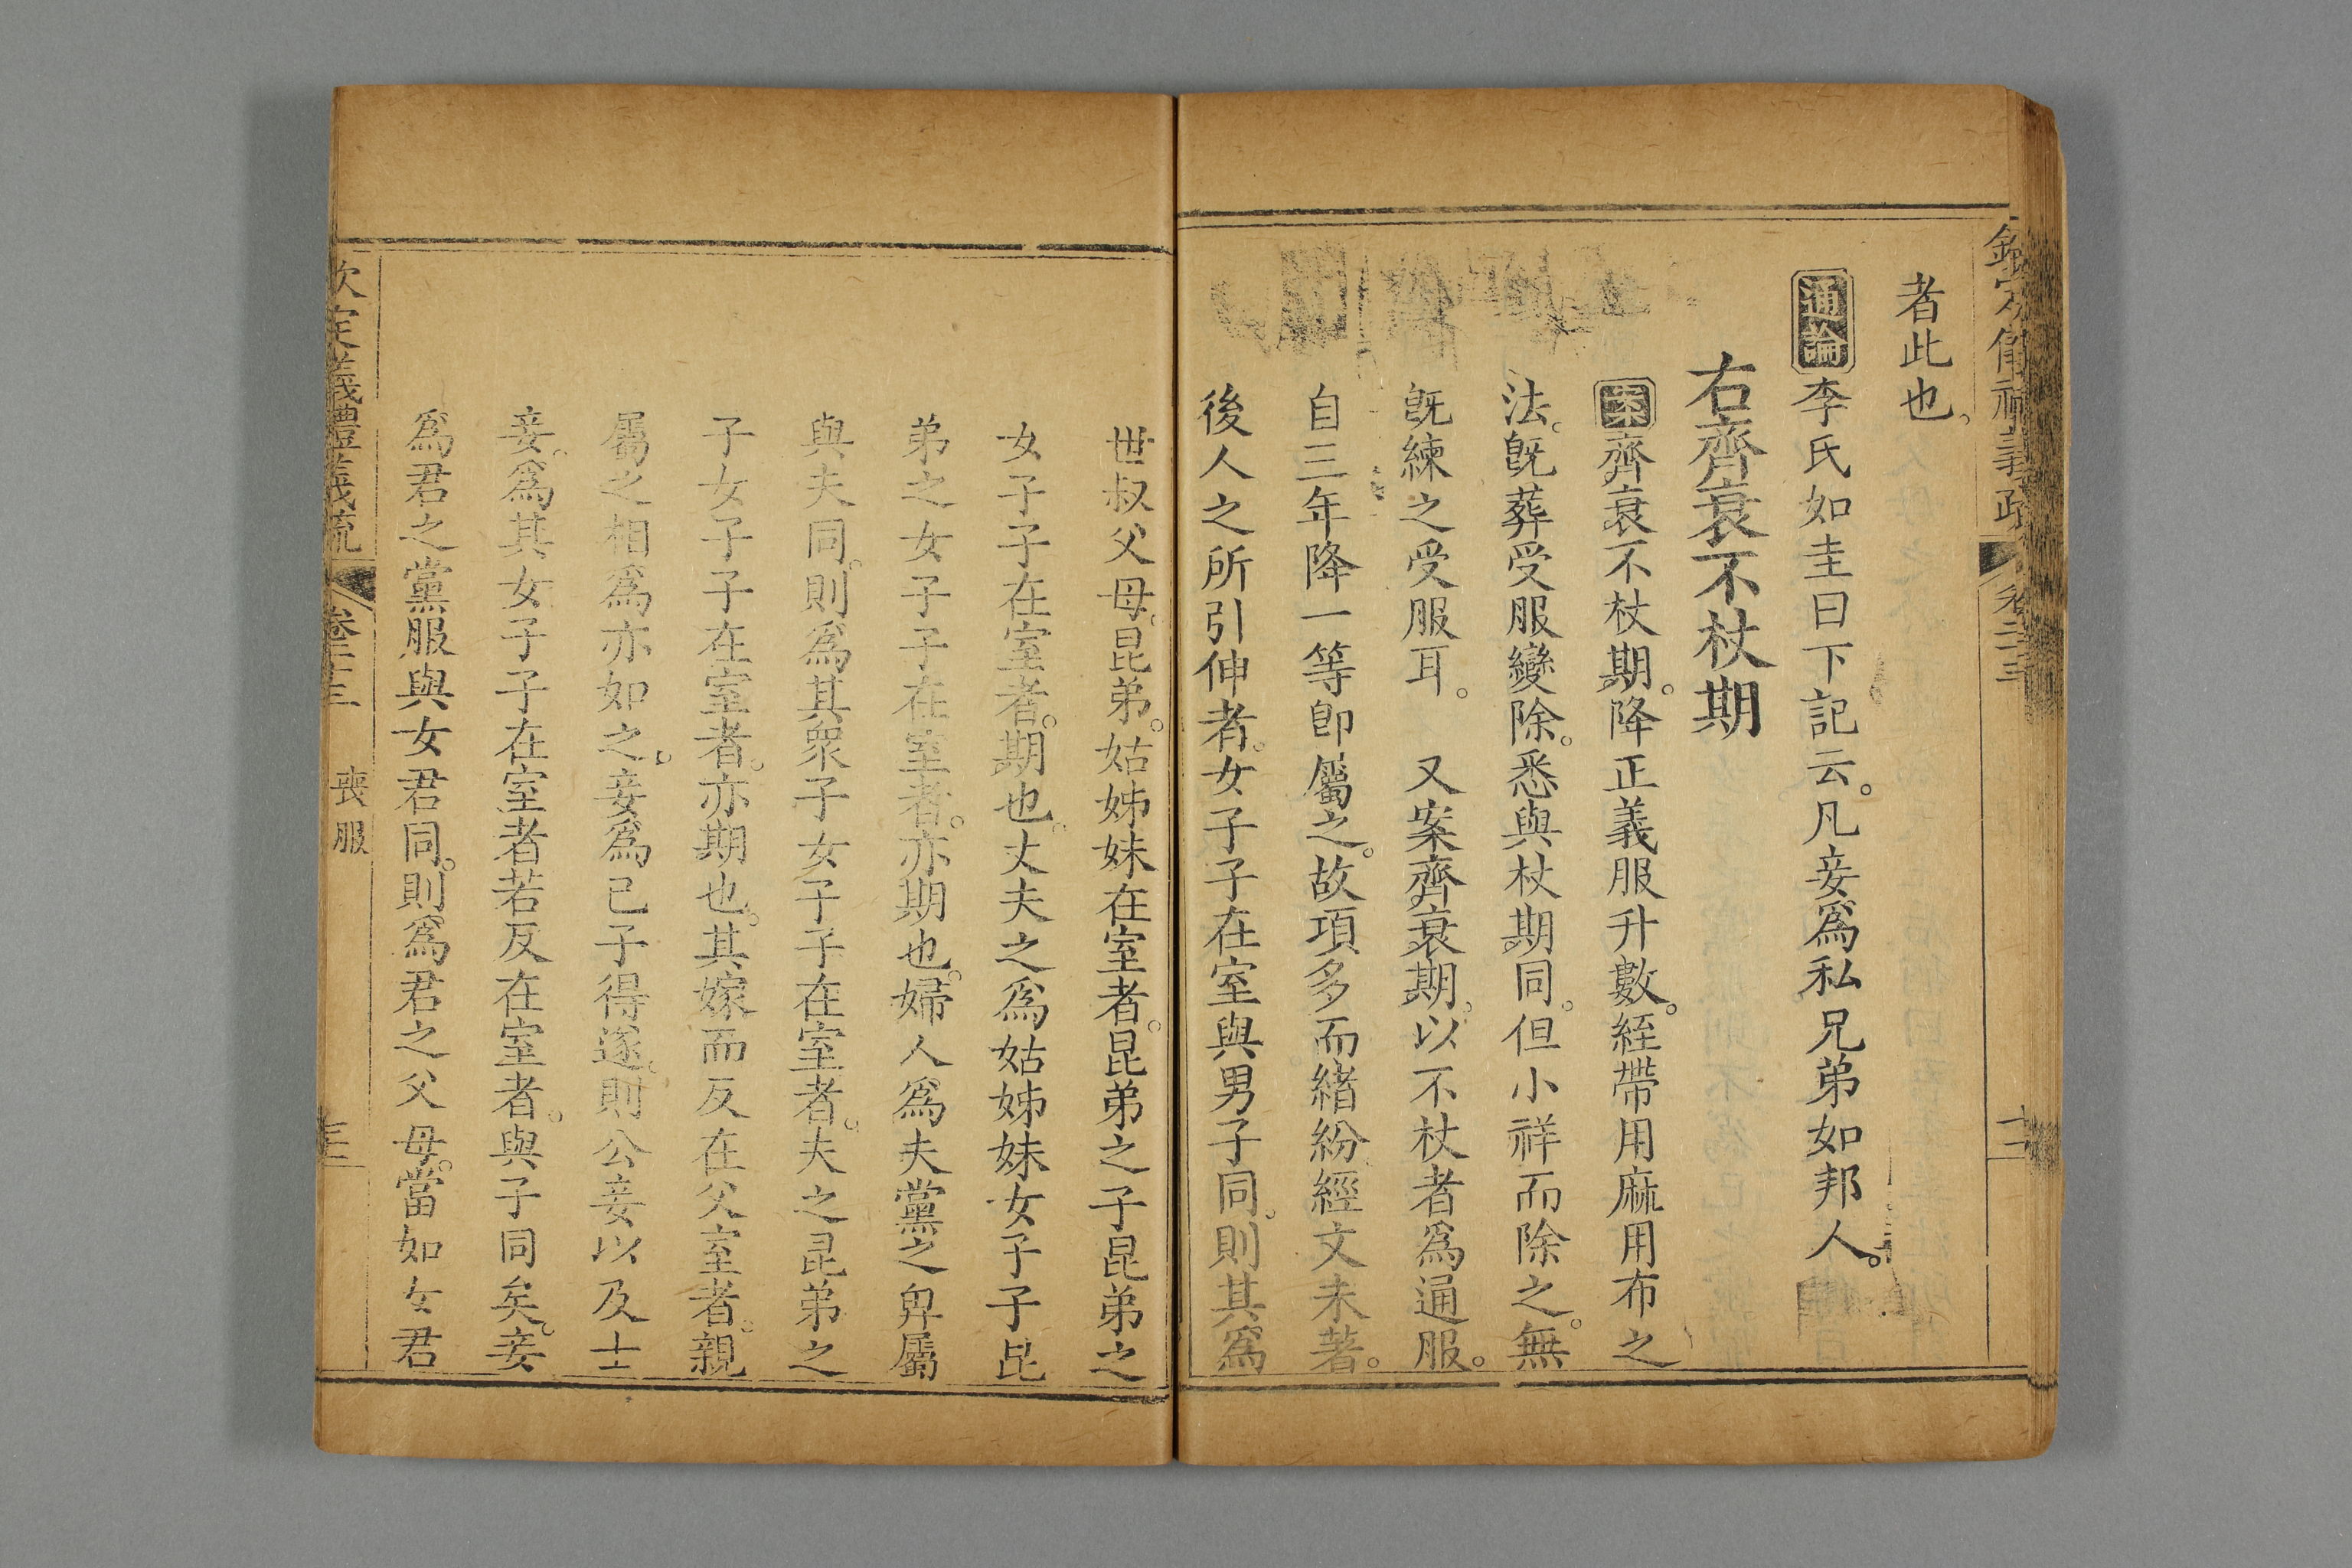 欽定儀禮義疏 卷二十三 十二
者此也。
通論李氏如圭曰下記云。凡妾爲私兄弟如邦人。
右齊衰不杖期
案齊衰不杖期。降正義服升數。絰帶用麻用布之
法。旣葬受服變除。悉與杖期同。但小祥而除之。無
旣練之受服耳。 又案齊衰期。以不杖者爲通服。
自三年降一等卽屬之。故項多而緒紛經文未著。
後人之所引伸者。女子子在室與男子同。則其爲
世叔父母。昆弟。姑姊妹在室者。昆弟之子昆弟之
女子子在室者。期也。丈夫之爲姑姊妹女子子昆
弟之女子子在室者。亦期也。婦人爲夫黨之卑屬
與夫同。則爲其衆子女子子在室者。夫之昆弟之
子女子子在室者。亦期也。其嫁而反在父室者。親
屬之相爲亦如之。妾爲已子得遂。則公妾以及士
妾。爲其女子子在室者若反在室者。與子同矣。妾
爲君之黨服與女君同。則爲君之父母。當如女君
欽定義禮義疏 卷二十三 喪服